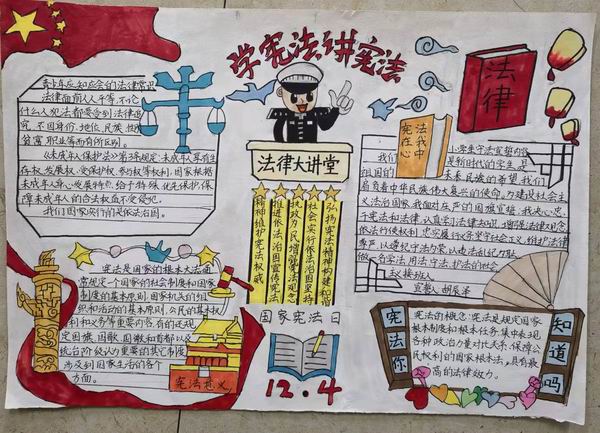 学宪法讲宪法
青少年应知应会的法律常识
法律面前人人平等,不论
什么人犯法都要受到法律追
究,不因身份、地位、民族、性别
贫富、职业等而有所区别。
《未成年人保护法》第3条规定:未成年人享有生
存权、发展权、受保护权、参与权等权利,国家根据
未成年人身心发展特点给予特殊、优先保护,保
障未成年人的合法权益不受侵犯。
我们国家实行的是依法治国。
法律大讲堂
弘扬宪法精神构建和谐
社会实行依法治国坚持
执政为民增强宪法观念
推进依法治国宣传宪法
精神维护宪法权威
法律
宪法在我心中
小学生守法宣誓内容
我们是新时代的学生,是
祖国的未来,民族的希望,我们
肩负着中华民族伟大复兴的使命。为建设社会主
义法治国家,我面对庄严的国旗宣誓:我决心忠
于宪法和法律,认真学习法律知识,增强法律观念,
依法行使权利,忠实履行义务,坚守社会正义,维护法律
尊严,以遵纪守法为荣,以违法乱纪为耻,
做一名学法、用法、守法、护法的社会
主义接班人。
宣誓人:胡辰泽
宪法是国家的根本大法,通
常规定一个国家的社会制度和国家
制度的基本原则、国家机关的组
织和活动的基本原则,公民的基本权
利和义务等重要内容,有的还规
定国旗、国歌、国徽和首都以及
统治阶级认为重要的其它制度,
涉及到国家生活的各个
方面。
宪法意义
国家宪法日
12.4
宪法你
知道吗
宪法的概念:宪法是规定国家
根本制度和根本任务、集中表现
各种政治力量对比关系、保障公
民权利的国家根本法,具有最
高的法律效力。